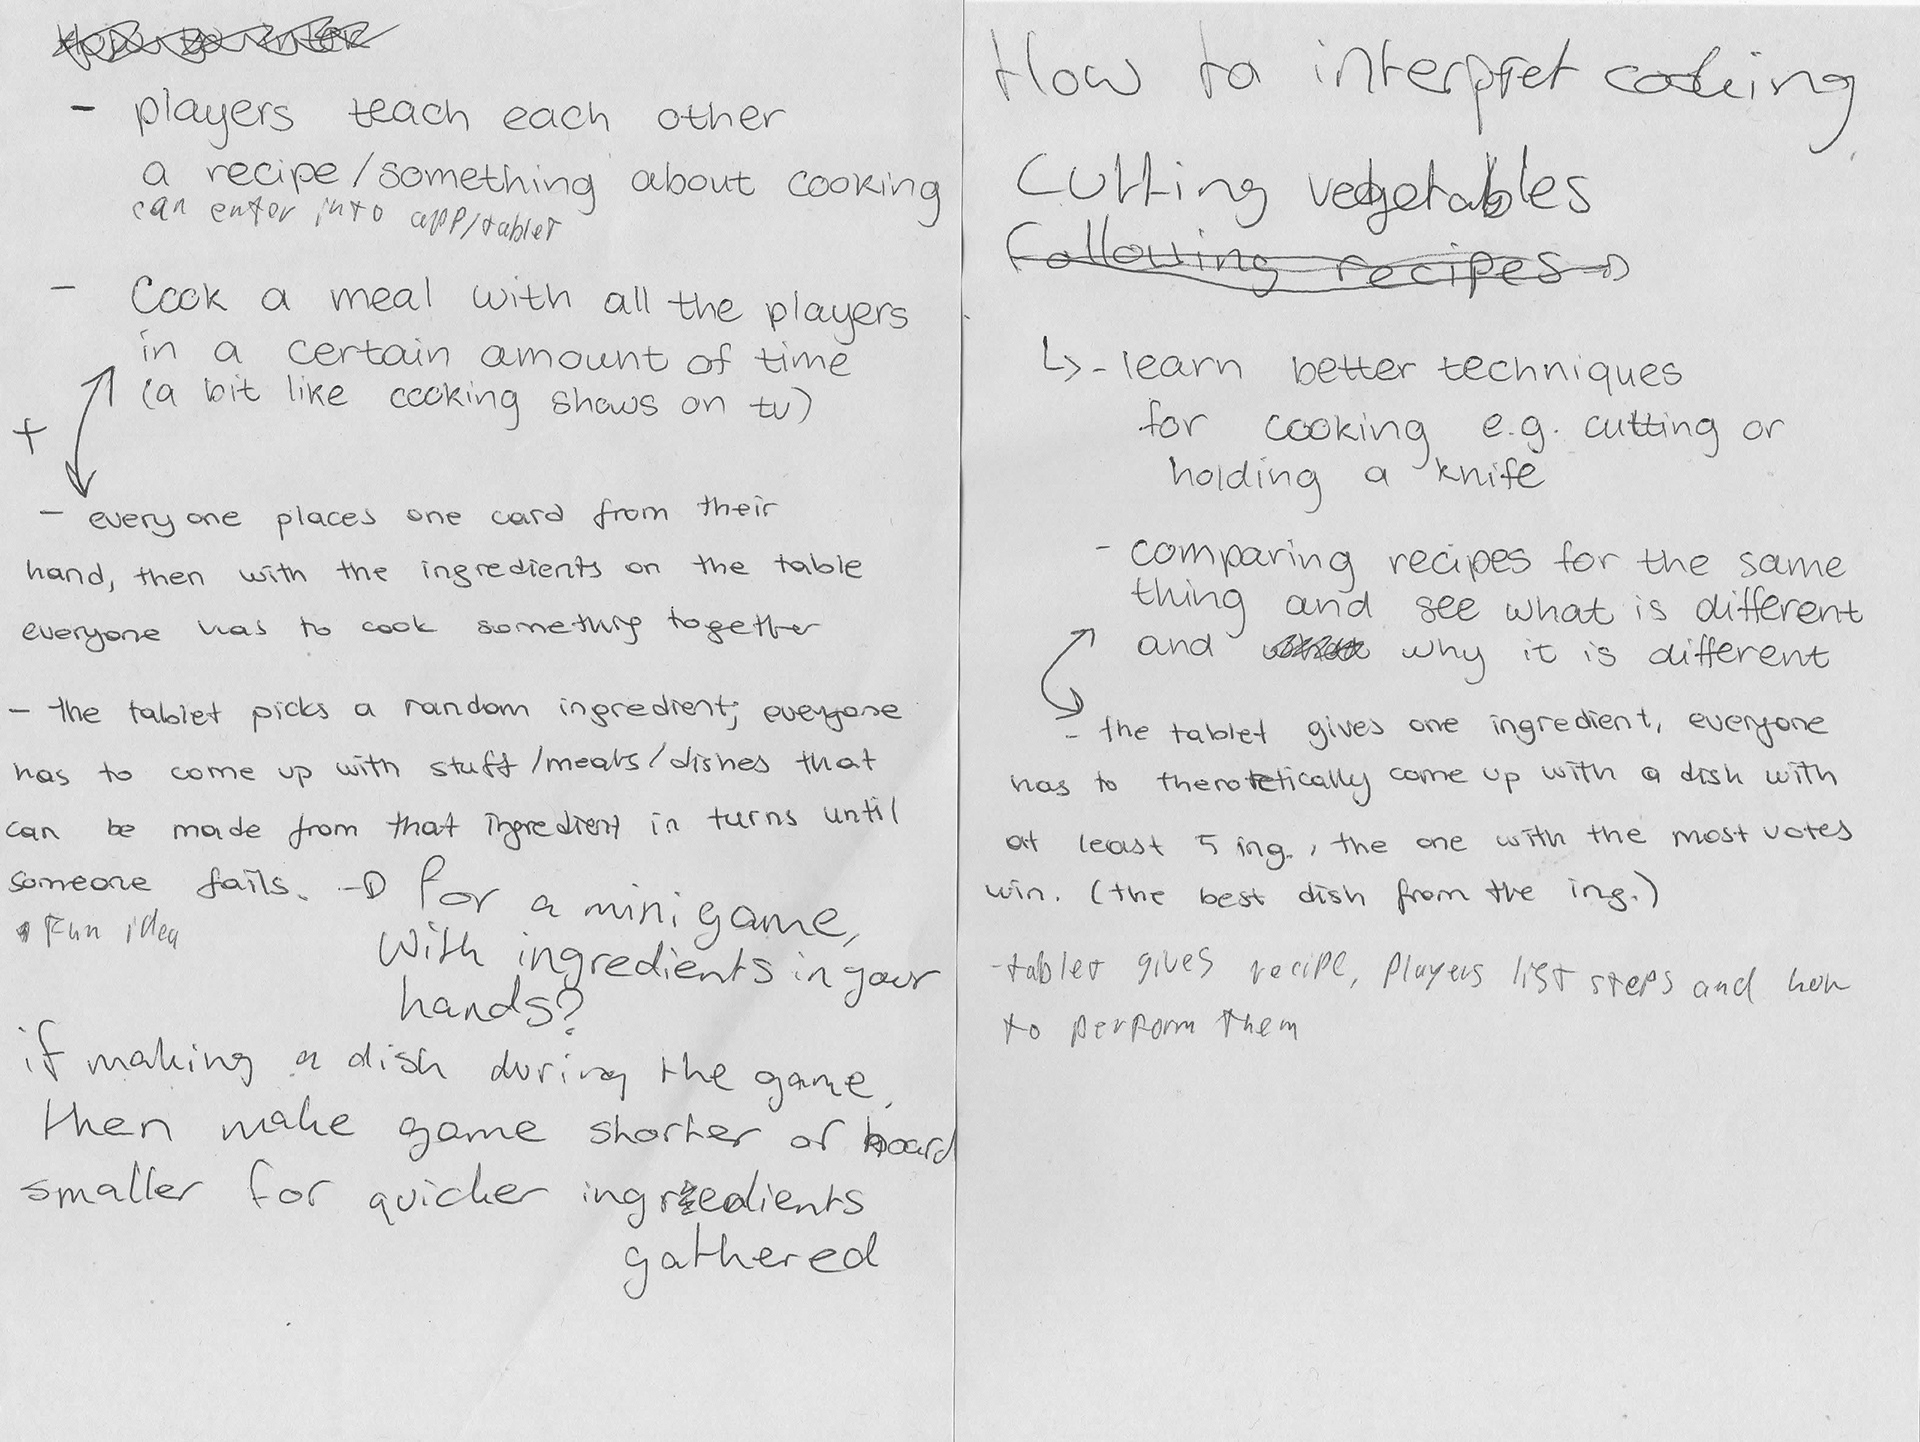 - players teach each other
a recipe/something about cooking
can enter into app/tablet
- Cook a meal with all the players
in a certain amount of time
(a bit like cooking shows on tv)
+
- everyone places one card from their
hand, then with the ingredients on the table
everyone has to cook something together
- the tablet picks a random ingredient; everyone
has to come up with stuff/meals/dishes that
can be made from that ingredient in turns until
someone fails. → for a mini game,
with ingredients in your
hands?
• Fun idea
if making a dish during the game,
then make game shorter or board
smaller for quicker ingredients
gathered
How to interpret cooking
Cutting vegetables
Following recipes →
↳ - learn better techniques
for cooking e.g. cutting or
holding a knife
- comparing recipes for the same
thing and see what is different
and why it is different
- the tablet gives one ingredient, everyone
has to therotetically come up with a dish with
at least 5 ing., the one with the most votes
win. (the best dish from the ing.)
- tablet gives recipe, players list steps and how
to perform them